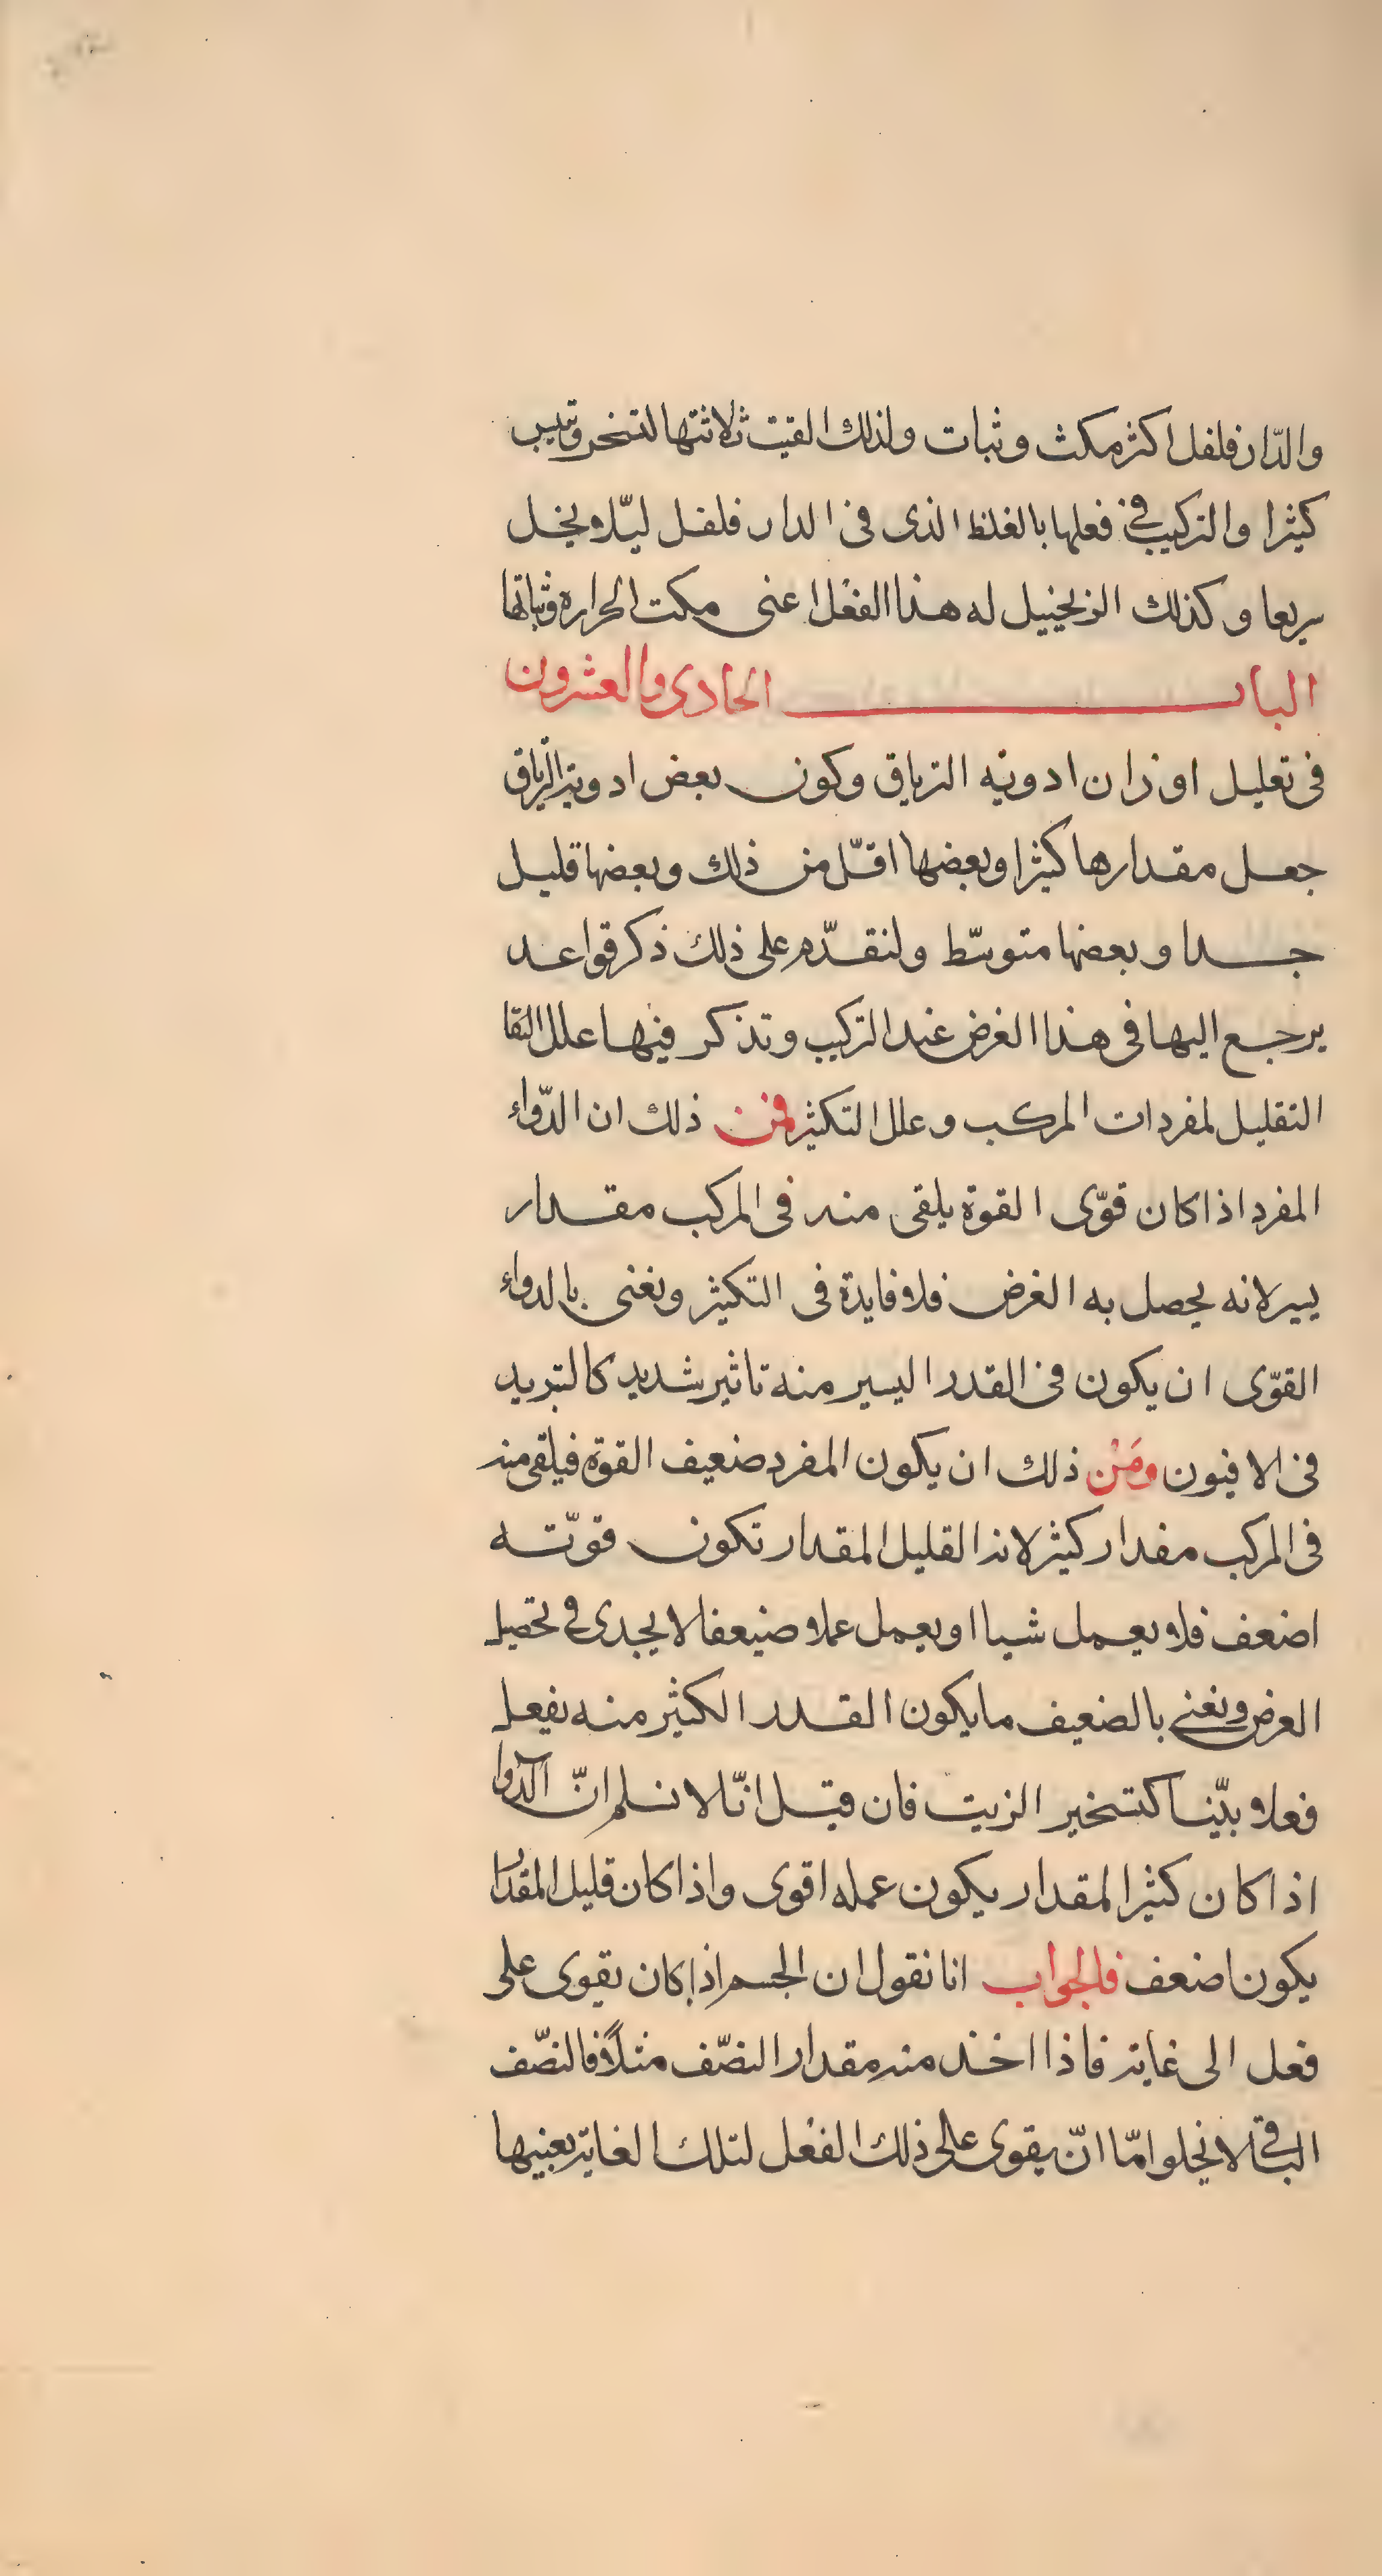 والدّار فلفل اكثر مكث وثبات ولذلك القيت ثلاثتها لتسخر وتيبس
كثيرا والتركيب في فعلها بالغلظ الذى فى الدار فلفل ليّلا ويخل
سريعا وكذلك الزنجبيل له هذا الفعل اعنى مكث الحراره وثباتها
الباب الحادى والعشرون
فى تعليل اوزان ادويه الترياق وكون بعض ادويتر الترياق
جعل مقدارها كثيرا وبعضها اقلّ من ذلك وبعضها قليل
جدا وبعضها متوسّط ولنقدّم على ذلك ذكر قواعد
يرجع اليها فى هذا الغرض عند التركيب وتذكر فيها علل القا
التقليل لمفردات المركب وعلل التكثير فمن ذلك ان الدّواء
المفرد اذا كان قوّى القوة يلقى منه فى المركب مقدار
يسير لانه يحصل به الغرض فلا فايدة فى التكثير ونعنى بالدواء
القوّى ان يكون فى القدر اليسير منه تاثير شديد كالتبريد
فى الافيون ومَنْ ذلك ان يكون المفرد ضعيف القوة فيلقى منه
فى المركب مقدار كثير لانه القليل المقدار تكون قوّته
اضعف فلا يعمل شيا او يعمل عملا ضيعفا لا يجدى فى تحصيل
الغرض ونعنى بالضعيف ما يكون القدر الكثير منه يفعل
فعلا بيّنا كتسخير الزيت فان قيل انّا لا نسلم انّ الدّوا
اذا كان كثير المقدار يكون عمله اقوى واذا كان قليل المقدار
يكون اضعف فالجواب انا نقول ان الجسم اذا كان يقوى على
فعل الى غايه فاذا اخذ منه مقدار النصّف مثلًا فالنصّف
الباقى لا يخلوا امّا انّ يقوى على ذلك الفعل لتلك الغايه بعينها